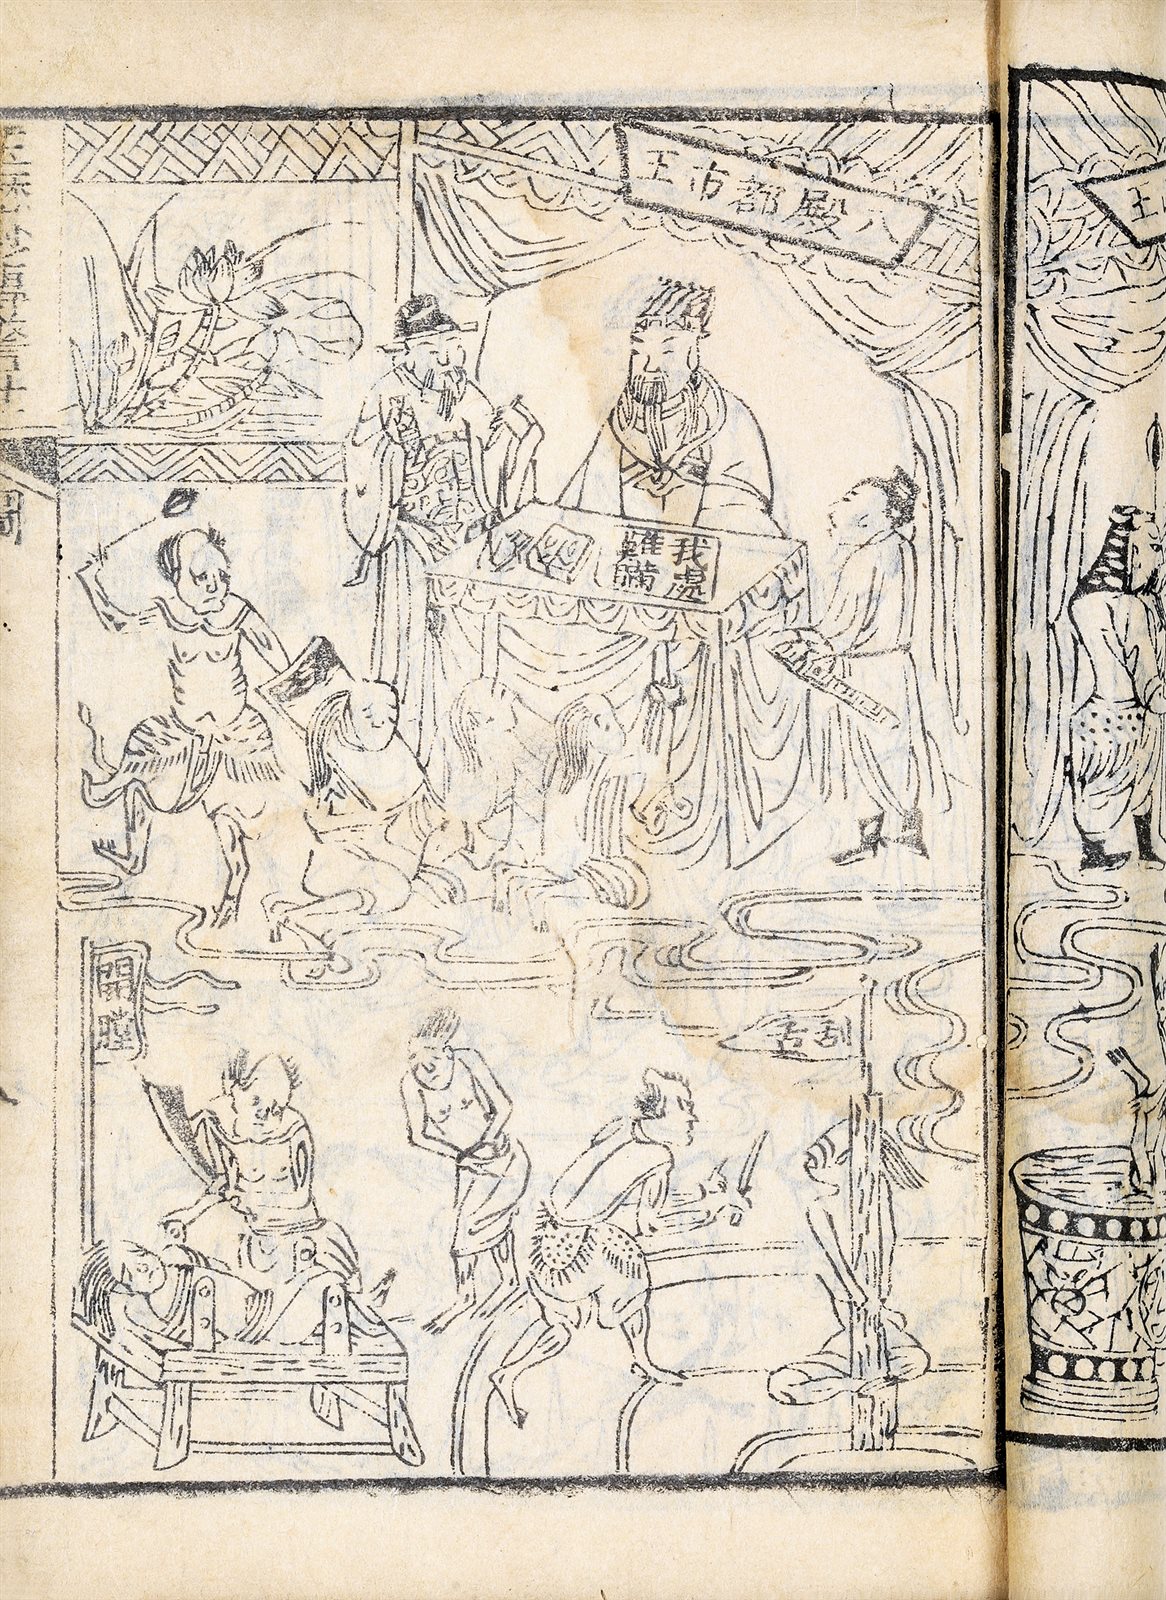 八殿都市王
我處
難瞞
開膛
刮舌
王